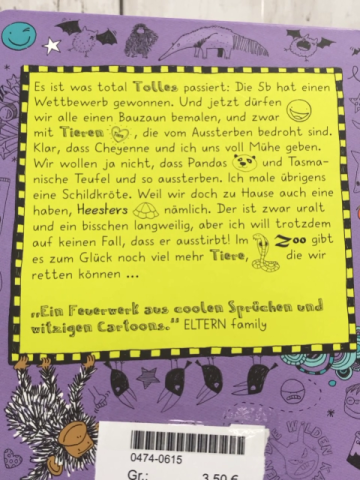 Es ist was total Tolles passiert: Die 5b hat einen
Wettbewerb gewonnen. Und jetzt dürfen
wir alle einen Bauzaun bemalen, und zwar
mit Tieren, die vom Aussterben bedroht sind.
Klar, dass Cheyenne und ich uns voll Mühe geben.
Wir wollen ja nicht, dass Pandas und Tasma-
nische Teufel und so aussterben. Ich male übrigens
eine Schildkröte. Weil wir doch zu Hause auch eine
haben, Heesters nämlich. Der ist zwar uralt
und ein bisschen langweilig, aber ich will trotzdem
auf keinen Fall, dass er ausstirbt! Im Zoo gibt
es zum Glück noch viel mehr Tiere, die wir
retten können ...
„Ein Feuerwerk aus coolen Sprüchen und
witzigen Cartoons.“ ELTERN family
WILDEN
0474-0615
Gr.: 3,50 €